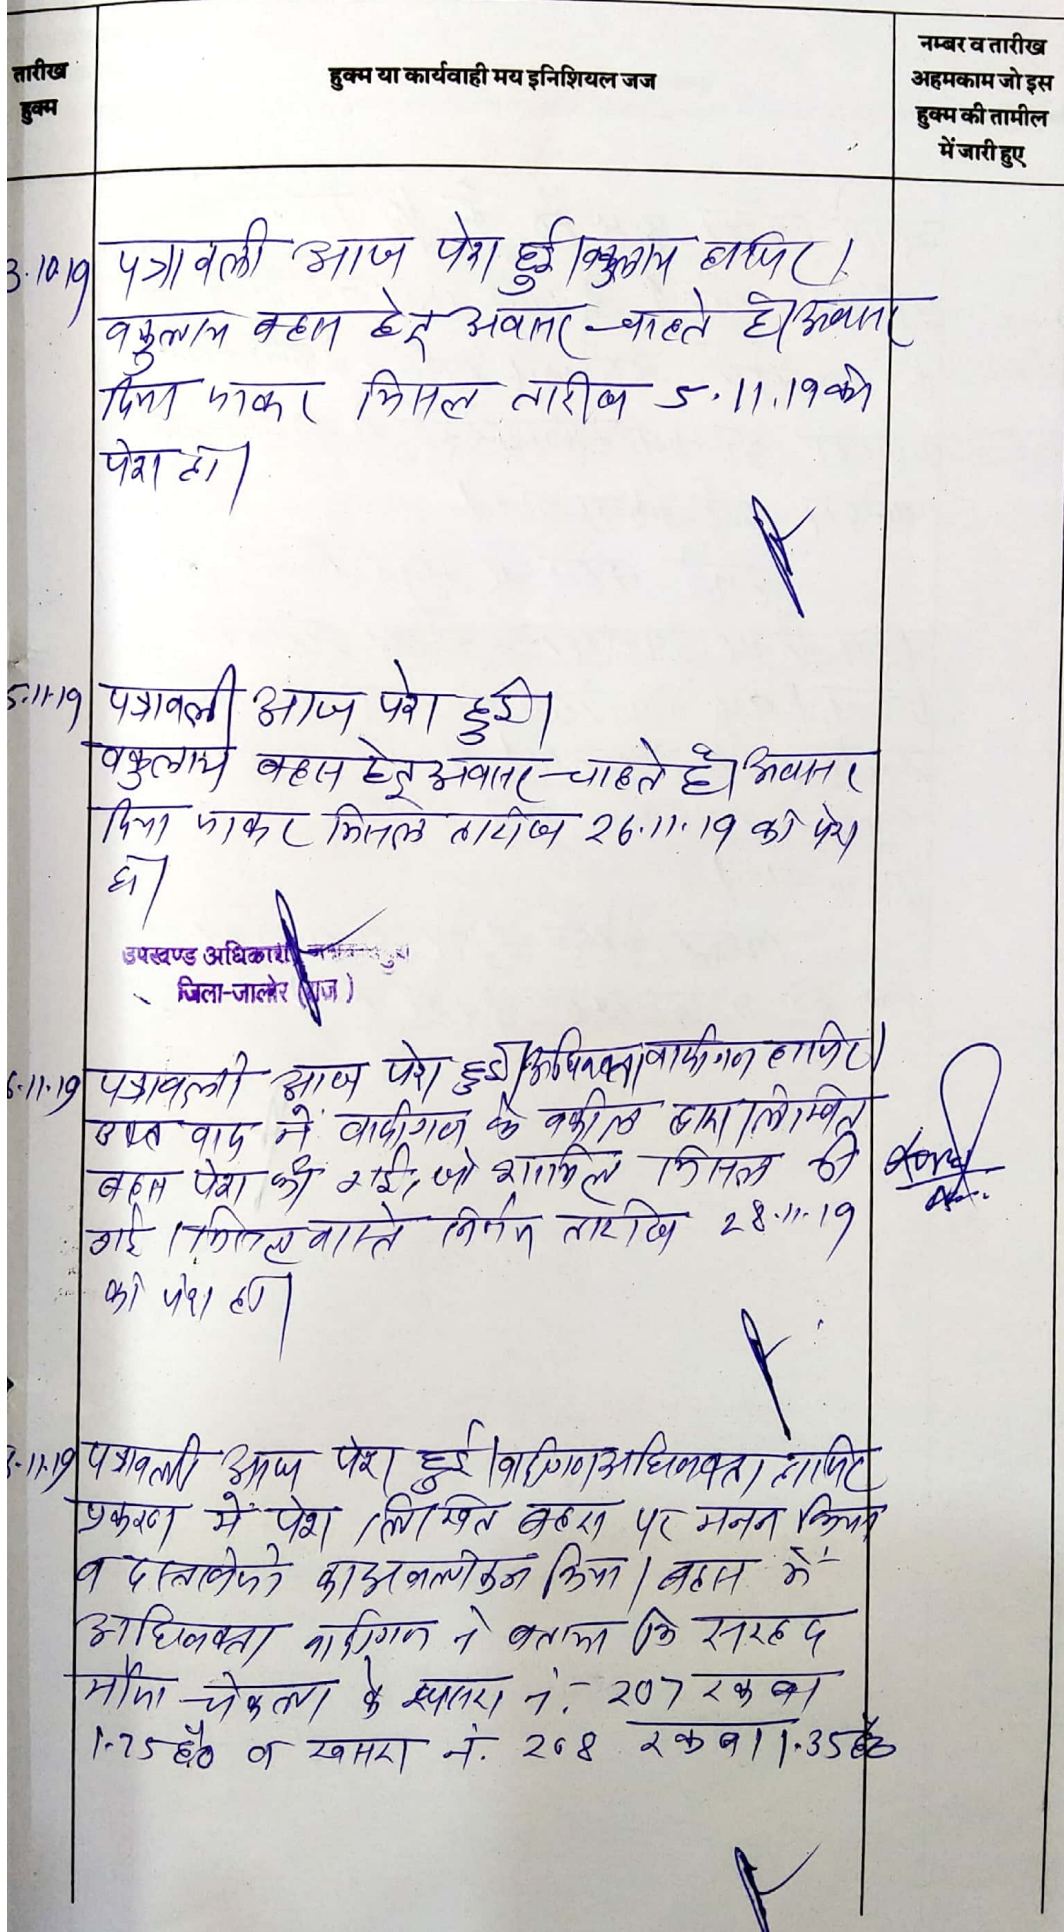 तारीख
हुक्म
हुक्म या कार्यवाही मय इनिशियल जज
नम्बर व तारीख
अहमकाम जो इस
हुक्म की तामील
में जारी हुए
3.10.19 पत्रावली आज पेश हुई। वकुलाय हाजिर।
वकुलाय बहस हेतू अवसर चाहते है। अवसर
दिया जाकर मिसल तारीख 5.11.19 को
पेश हो।
5.11.19 पत्रावली आज पेश हुई।
वकुलाय बहस हेतू अवसर चाहते है। अवसर
दिया जाकर मिसल तारीख 26.11.19 को पेश
हो।
उपखण्ड अधिकारी
जिला-जालोर (राज)
6.11.19 पत्रावली आज पेश हुई। अधिवक्ता वादीगण हाजिर।
उक्त वाद में वादीगण के वकील द्वारा लिखित
बहस पेश की गई, जो शामिल मिसल की
गई। मिसल वास्ते निर्णय तारीख 28.11.19
को पेश हो।
8.11.19 पत्रावली आज पेश हुई। वादीगण अधिवक्ता हाजिर
प्रकरण में पेश लिखित बहस पर मनन किया
व दस्तावेजो का अवलोकन किया। बहस में
अधिवक्ता वादीगण ने बताया कि सरहद
मौजा चेकला के खसरा नं. 207 रकबा
1.75 है० व खसरा नं. 208 रकबा 1.35 है०